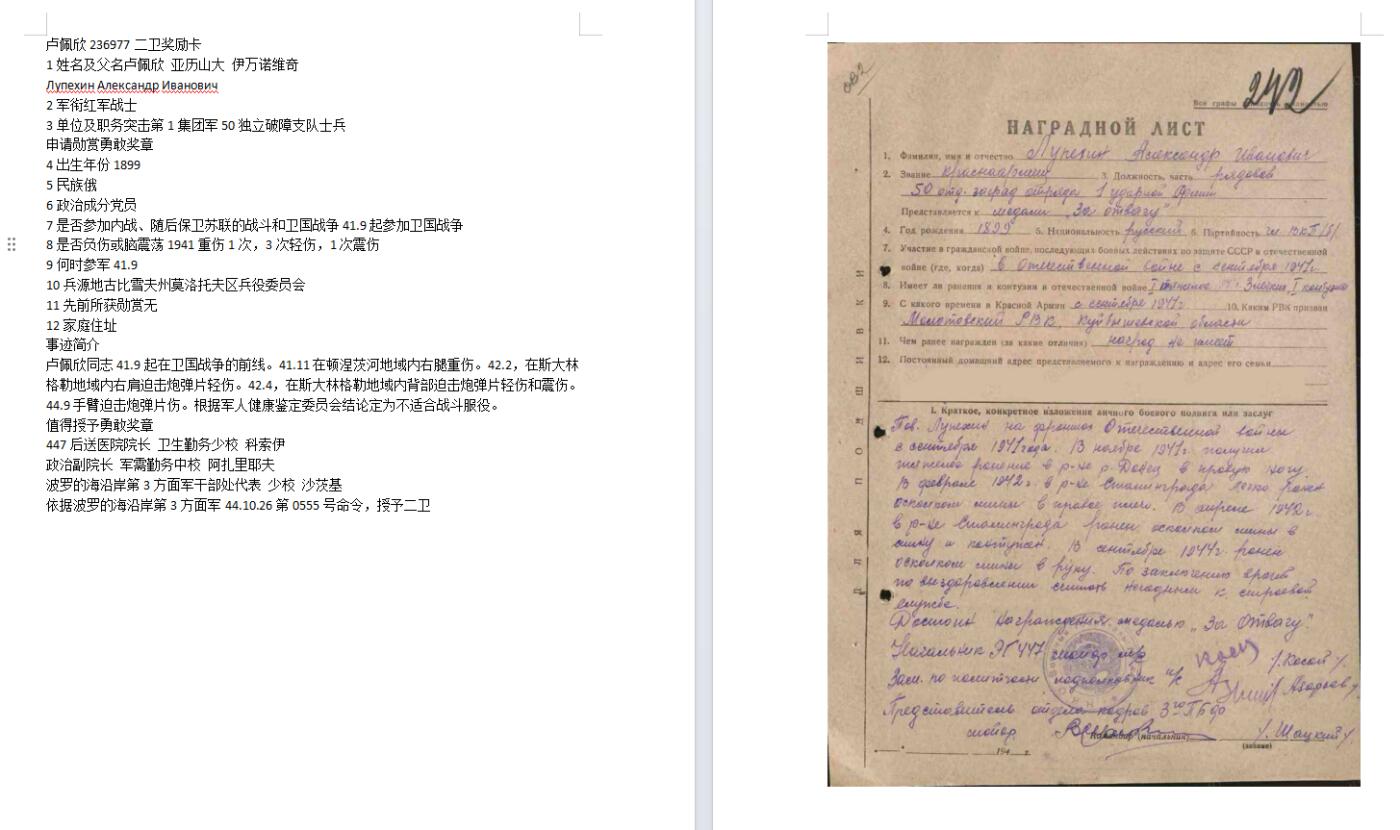 卢佩欣 236977 二卫奖励卡
1 姓名及父名卢佩欣 亚历山大 伊万诺维奇
Лупехин Александр Иванович
2 军衔红军战士
3 单位及职务突击第 1 集团军 50 独立破障支队士兵
申请勋赏勇敢奖章
4 出生年份 1899
5 民族俄
6 政治成分党员
7 是否参加内战、随后保卫苏联的战斗和卫国战争 41.9 起参加卫国战争
8 是否负伤或脑震荡 1941 重伤 1 次，3 次轻伤，1 次震伤
9 何时参军 41.9
10 兵源地古比雪夫州莫洛托夫区兵役委员会
11 先前所获勋赏无
12 家庭住址
事迹简介
卢佩欣同志 41.9 起在卫国战争的前线。41.11 在顿涅茨河地域内右腿重伤。42.2，在斯大林
格勒地域内右肩迫击炮弹片轻伤。42.4，在斯大林格勒地域内背部迫击炮弹片轻伤和震伤。
44.9 手臂迫击炮弹片伤。根据军人健康鉴定委员会结论定为不适合战斗服役。
值得授予勇敢奖章
447 后送医院院长 卫生勤务少校 科索伊
政治副院长 军需勤务中校 阿扎里耶夫
波罗的海沿岸第 3 方面军干部处代表 少校 沙茨基
依据波罗的海沿岸第 3 方面军 44.10.26 第 0555 号命令，授予二卫
242
Все графы
НАГРАДНОЙ ЛИСТ
1. Фамилия, имя и отчество Лупехин Александр Иванович
2. Звание красноармеец 3. Должность, часть рядовой
50 отд. заград отряда 1 ударной Армии
Представляется к медали „За отвагу"
4. Год рождения 1899 5. Национальность русский 6. Партийность чл. ВКП/б/
7. Участие в гражданской войне, последующих боевых действиях по защите СССР и отечественной
войне (где, когда) в Отечественной войне с сентября 1941г.
8. Имеет ли ранения и контузии в отечественной войне
9. С какого времени в Красной Армии с сентября 1941г. 10. Каким РВК призван
Молотовский РВК, Куйбышевской области
11. Чем ранее награжден (за какие отличия) наград не имеет
12. Постоянный домашний адрес представляемого к награждению и адрес его семьи
ДЛЯ ПОДШИВКИ
I. Краткое, конкретное изложение личного боевого подвига или заслуг
Тов. Лупехин на фронтах Отечественной войны
с сентября 1941 года. В ноябре 1941г. получил
тяжелое ранение в р-не р. Донец в правую ногу.
В феврале 1942г. в р-не Сталинграда легко ранен
осколком мины в правое плечо. В апреле 1942г.
в р-не Сталинграда ранен осколком мины в
спину и контужен. В сентябре 1944г. ранен
осколком мины в руку. По заключению врачей
по выздоровлении считать негодным к строевой
службе.
Достоин награждения медалью „За Отвагу".
Начальник ЭГ 447 майор м/с /Косой/
Зам. по политчасти подполковник и/с /Азарьев/
Представитель отдела кадров 3го ПБФ
майор Командир (начальник) /Шацкий/
194 г.